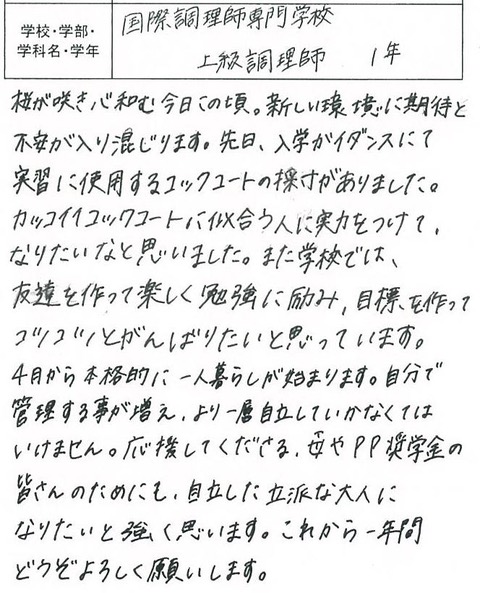 学校・学部・
学科名・学年
国際調理師専門学校
上級調理師 1年
桜が咲き心和む今日この頃。新しい環境に期待と
不安が入り混じります。先日、入学ガイダンスにて
実習に使用するコックコートの採寸がありました。
カッコイイコックコートに似合う人に実力をつけて、
なりたいなと思いました。また学校では、
友達を作って楽しく勉強に励み、目標を作って
コツコツとがんばりたいと思っています。
4月から本格的に一人暮らしが始まります。自分で
管理する事が増え、より一層自立していかなくては
いけません。応援してくださる、母やPP奨学金の
皆さんのためにも、自立した立派な大人に
なりたいと強く思います。これから一年間
どうぞよろしく願いします。